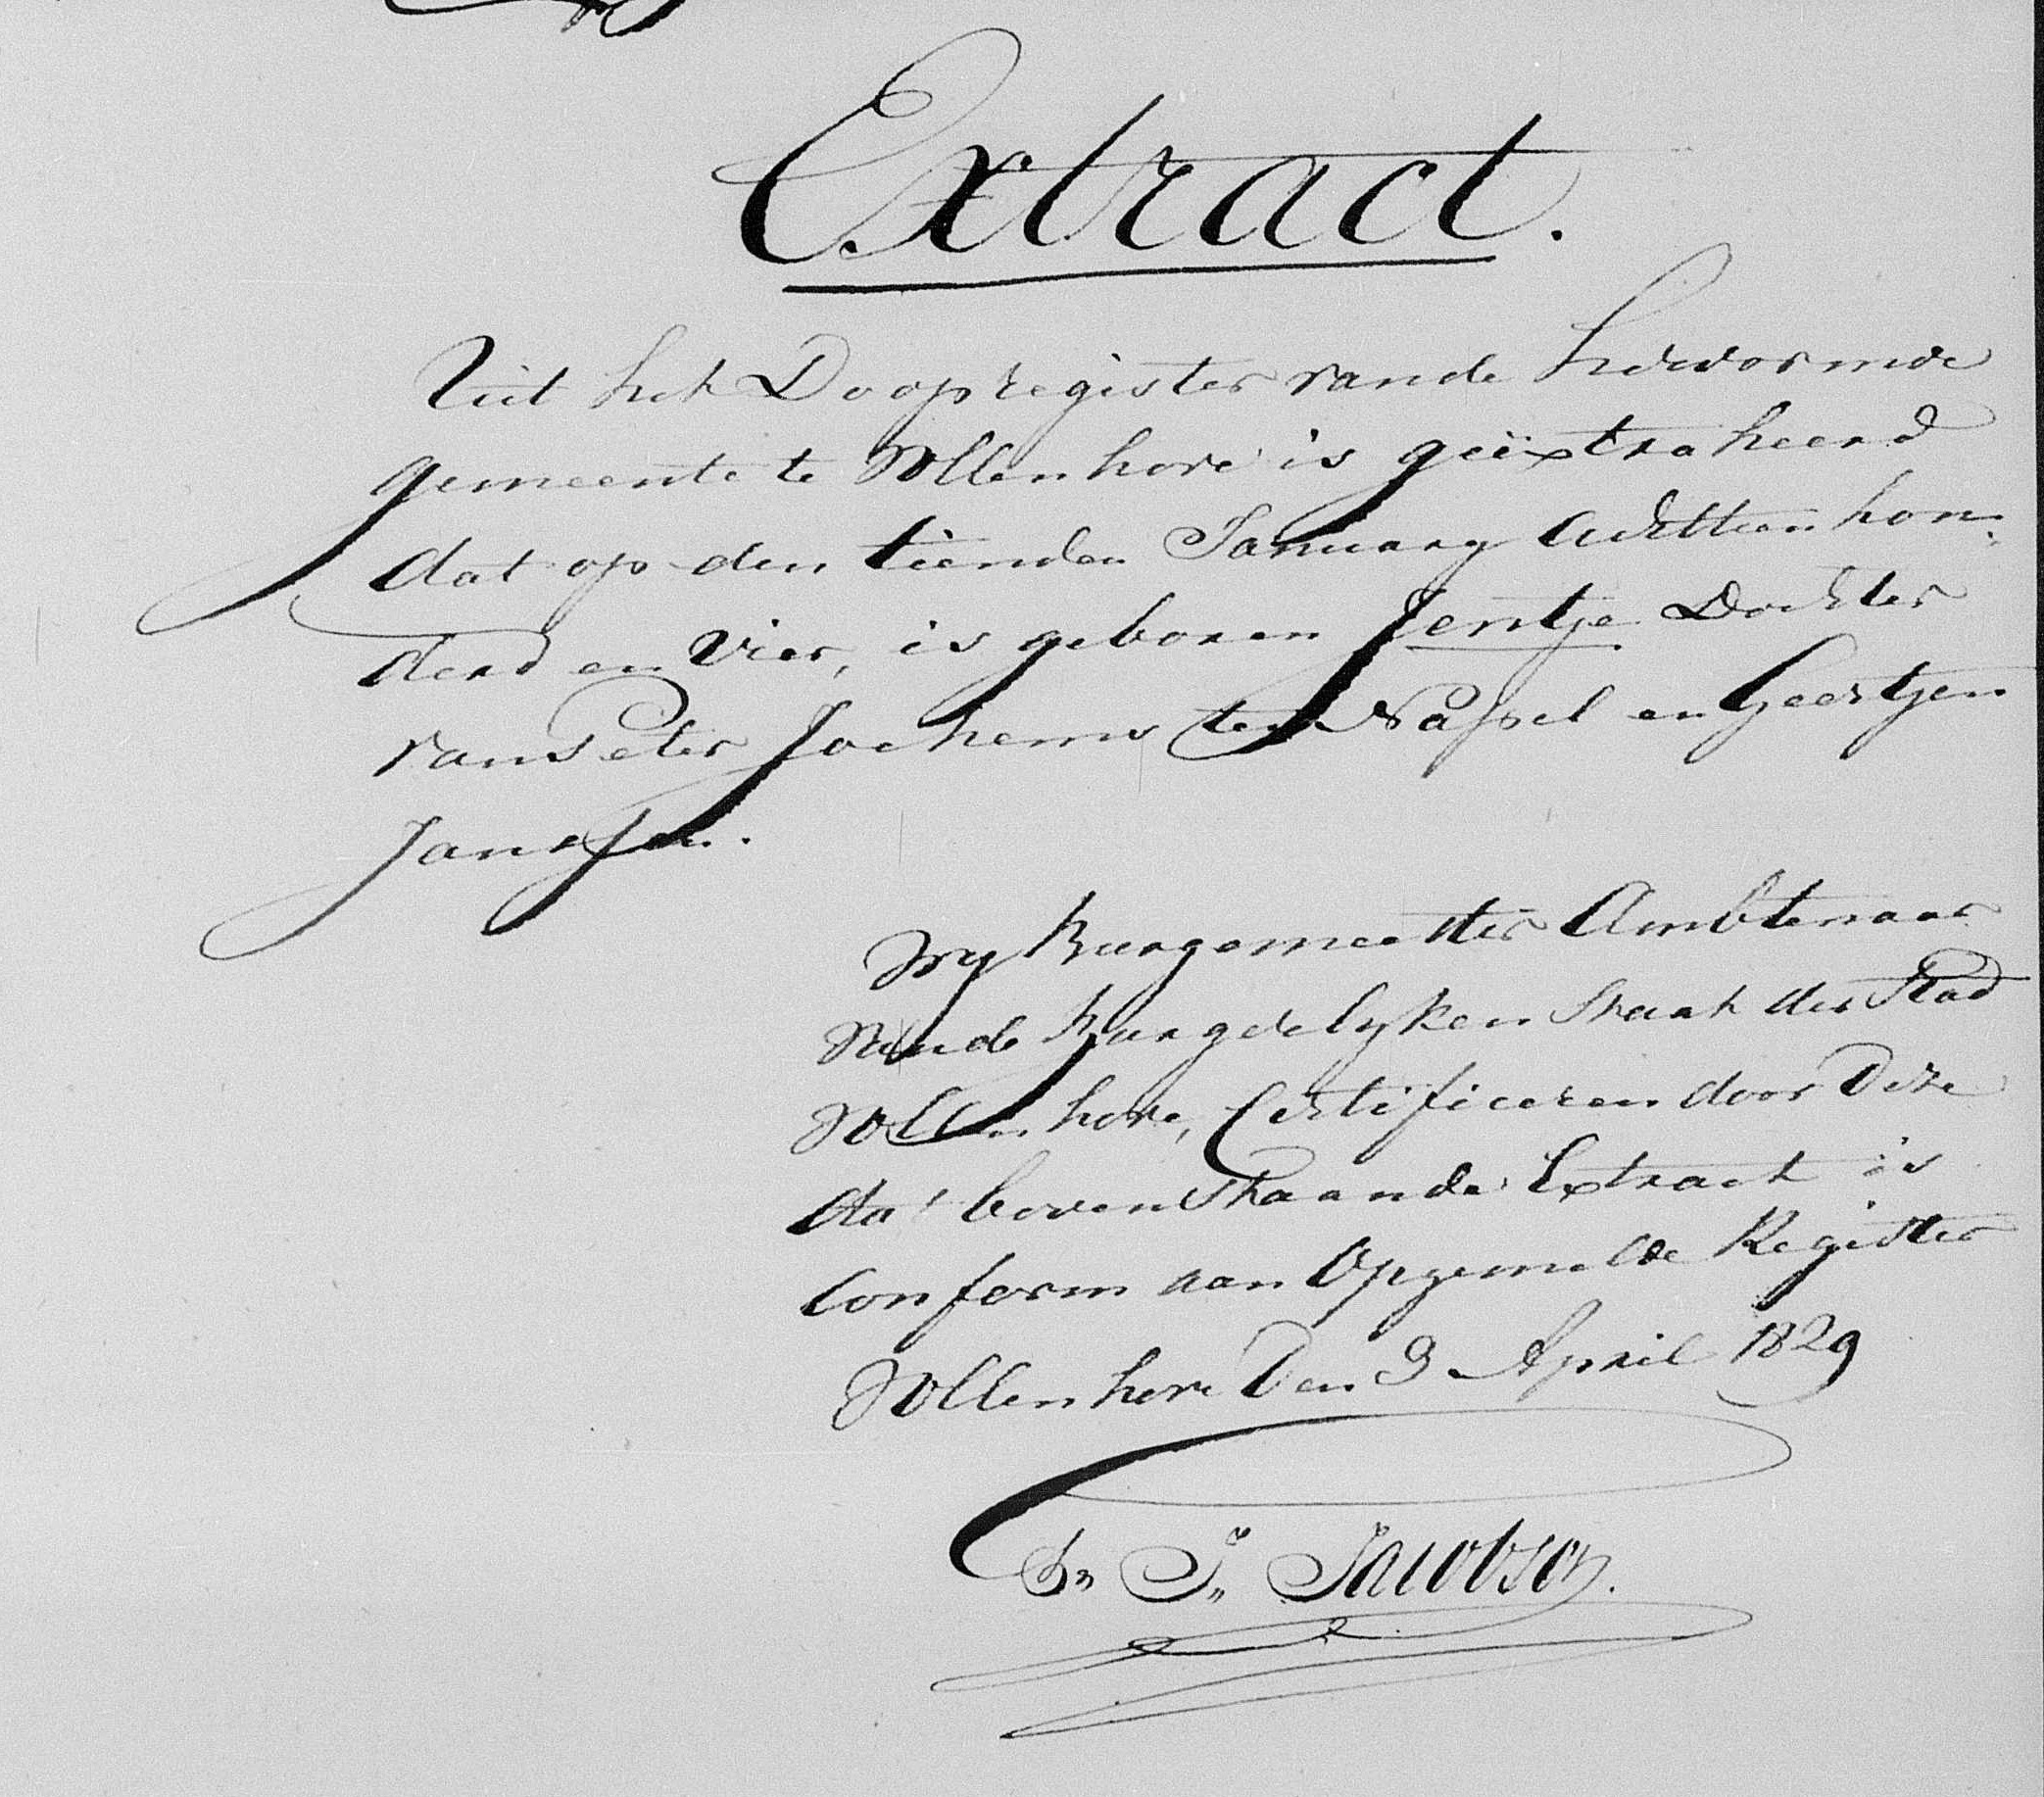 Extract.
Uit het Doopregister van de hervormde
gemeente te Vollenhove is geëxtraheerd
dat op den tienden January Achttien hon-
derd en vier, is geboren Jentje Dochter
van Peter Jochems ten Napel en Geertjen
Janssen.
Wy Burgemeester Ambtenaar
van de Burgelyken Staat der Stad
Vollenhove, Certificeren door Deze
dat bovenstaande Extract is
Conform aan Opgemelde Register
Vollenhove Den 3 April 1829
J. Jacobson.